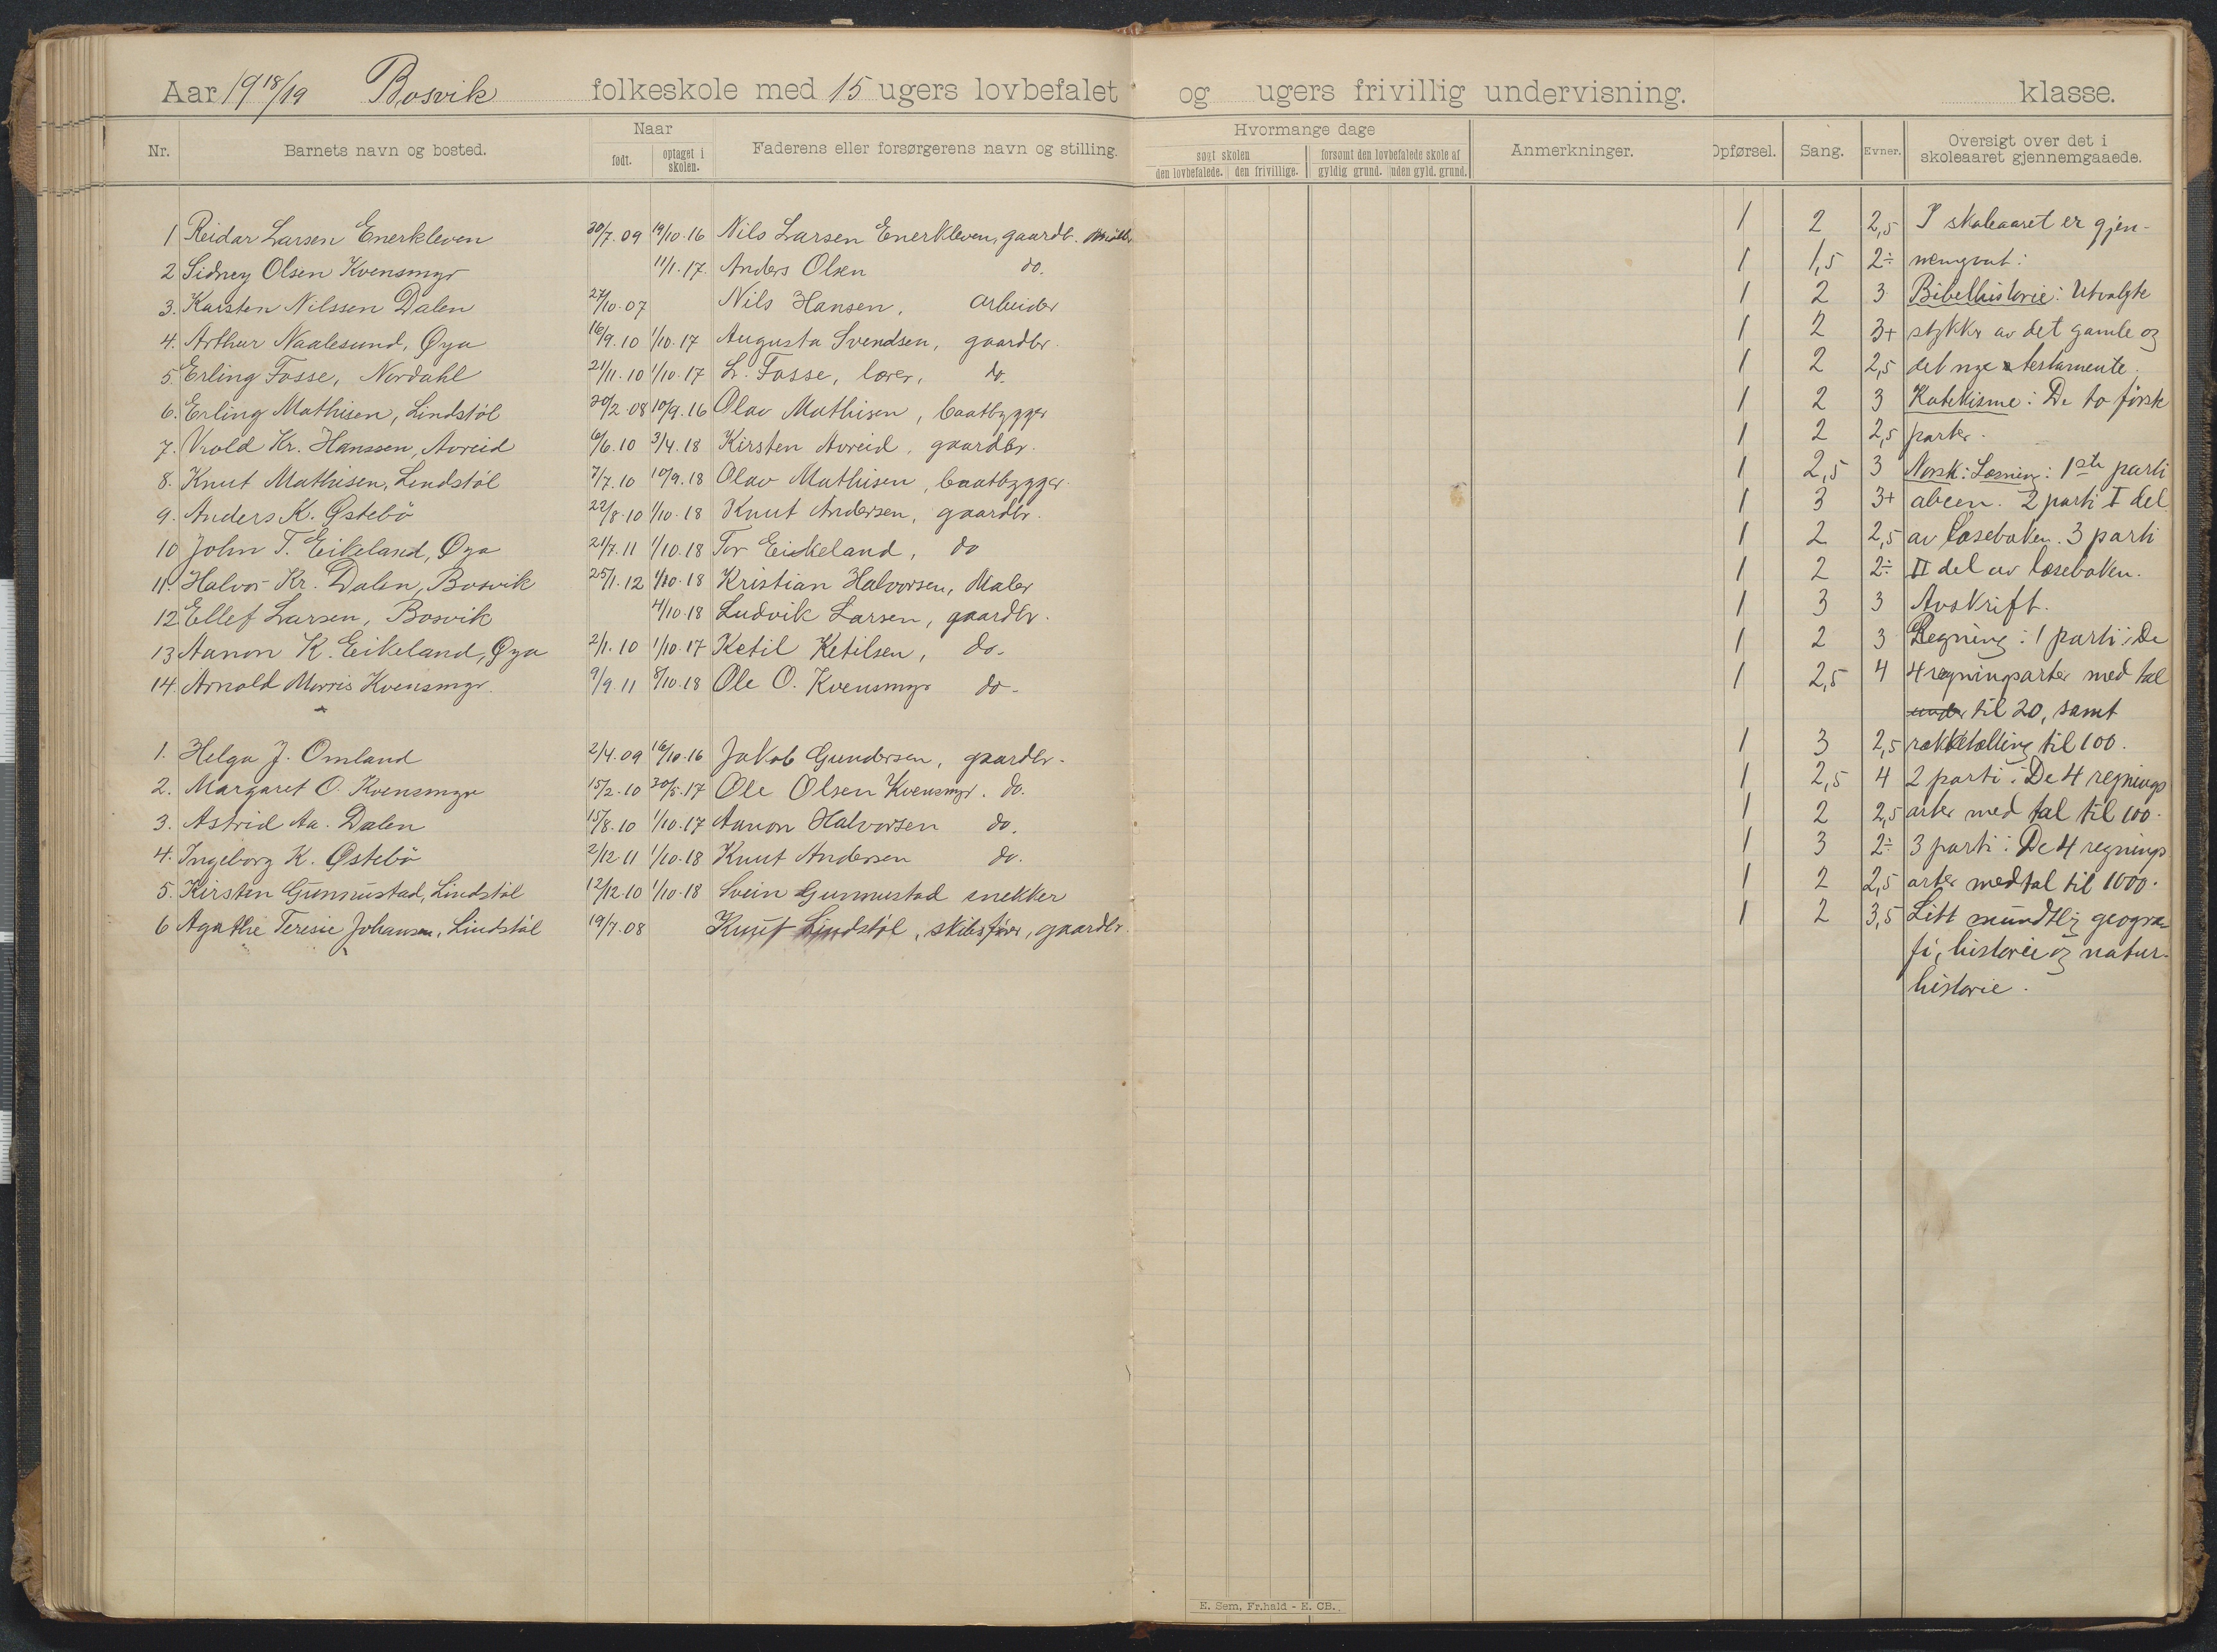 Aar 1918/19 Bosvik folkeskole med 15 ugers lovbefalet og ugers frivillig undervisning. klasse.
Nr. Barnets navn og bosted. Naar født. optaget i skolen. Faderens eller forsørgerens navn og stilling. Hvormange dage søgt skolen den lovbefalede. den frivillige. forsømt den lovbefalede skole af gyldig grund. uden gyld. grund. Anmerkninger. Opførsel. Sang. Evner. Oversigt over det i skoleaaret gjennemgaaede.
1 Reidar Larsen Enerkleven 30/7.09 19/10.16 Nils Larsen Enerkleven, gaardb. 1 2 2,5 I skoleaaret er gjen-
2 Sidney Olsen Kvensmyr 11/1.17. Anders Olsen do. 1 1,5 2÷ nemgaat:
3. Karsten Nilssen Dalen 27/10.07 Nils Hansen, arbeider 1 2 3 Bibelhistorie: Utvalgte
4. Arthur Naalesund, Øya 16/9.10 1/10.17 Augusta Svendsen, gaardbr. 1 2 3+ stykker av det gamle og
5. Erling Fosse, Nordahl 21/11.10 1/10.17 L. Fosse, lærer, do. 1 2 2,5 det nye testamente.
6. Erling Mathisen, Lindstöl 20/2.08 10/9.16 Olav Mathisen, baatbygger 1 2 3 Katekisme: De to første
7. Vrold Kr. Hanssen, Avreid 6/6.10 3/4.18 Kirsten Avreid, gaardbr. 1 2 2,5 parter.
8. Knut Mathisen, Lindstöl 7/7.10 10/9.18 Olav Mathisen, baatbygger 1 2,5 3 Norsk: Læsning: 1ste parti
9. Anders K. Østebö 22/8.10 1/10.18 Knut Andersen, gaardbr. 1 3 3+ abcen. 2 parti I del
10 John T. Eikeland, Øya 21/7.11 1/10.18 Tor Eikeland, do 1 2 2,5 av læseboken. 3 parti
11. Halvor Kr. Dalen, Bosvik 25/1.12 1/10.18 Kristian Halvorsen, Maler 1 2 2÷ II del av læseboken.
12 Ellef Larsen, Bosvik 4/10.18 Ludvik Larsen, gaardbr. 1 3 3 Avskrift.
13 Aanon K. Eikeland, Øya 2/1.10 1/10.17 Ketil Ketilsen, do. 1 2 3 Regning: 1 parti: De
14 Arnold Morris Kvensmyr. 9/9.11 8/10.18 Ole O. Kvensmyr do. 1 2,5 4 4 regningsarter med tal
under til 20, samt
1. Helga J. Omland 2/4.09 16/10.16 Jakob Gundersen, gaardbr. 1 3 2,5 rækketælling til 100.
2. Margaret O. Kvensmyr 15/2.10 30/5.17 Ole Olsen Kvensmyr. do. 1 2,5 4 2 parti: De 4 regnings
3. Astrid Aa. Dalen 15/8.10 1/10.17 Aanon Halvorsen do. 1 2 2,5 arter med tal til 100.
4. Ingeborg K. Østebö 2/12 11 1/10.18 Knut Andersen do. 1 3 2÷ 3 parti: De 4 regnings
5. Kirsten Gunnustad, Lindstöl 12/12.10 1/10.18 Svein Gunnustad snekker 1 2 2,5 arter med tal til 1000.
6 Agathe Teresie Johansen, Lindstöl 19/7.08 Knut Lindstöl, skibsfører, gaardbr. 1 2 3,5 Litt mundtlig geogra-
fi, historie og natur-
historie.
E. Sem, Fr.hald - E. CB.